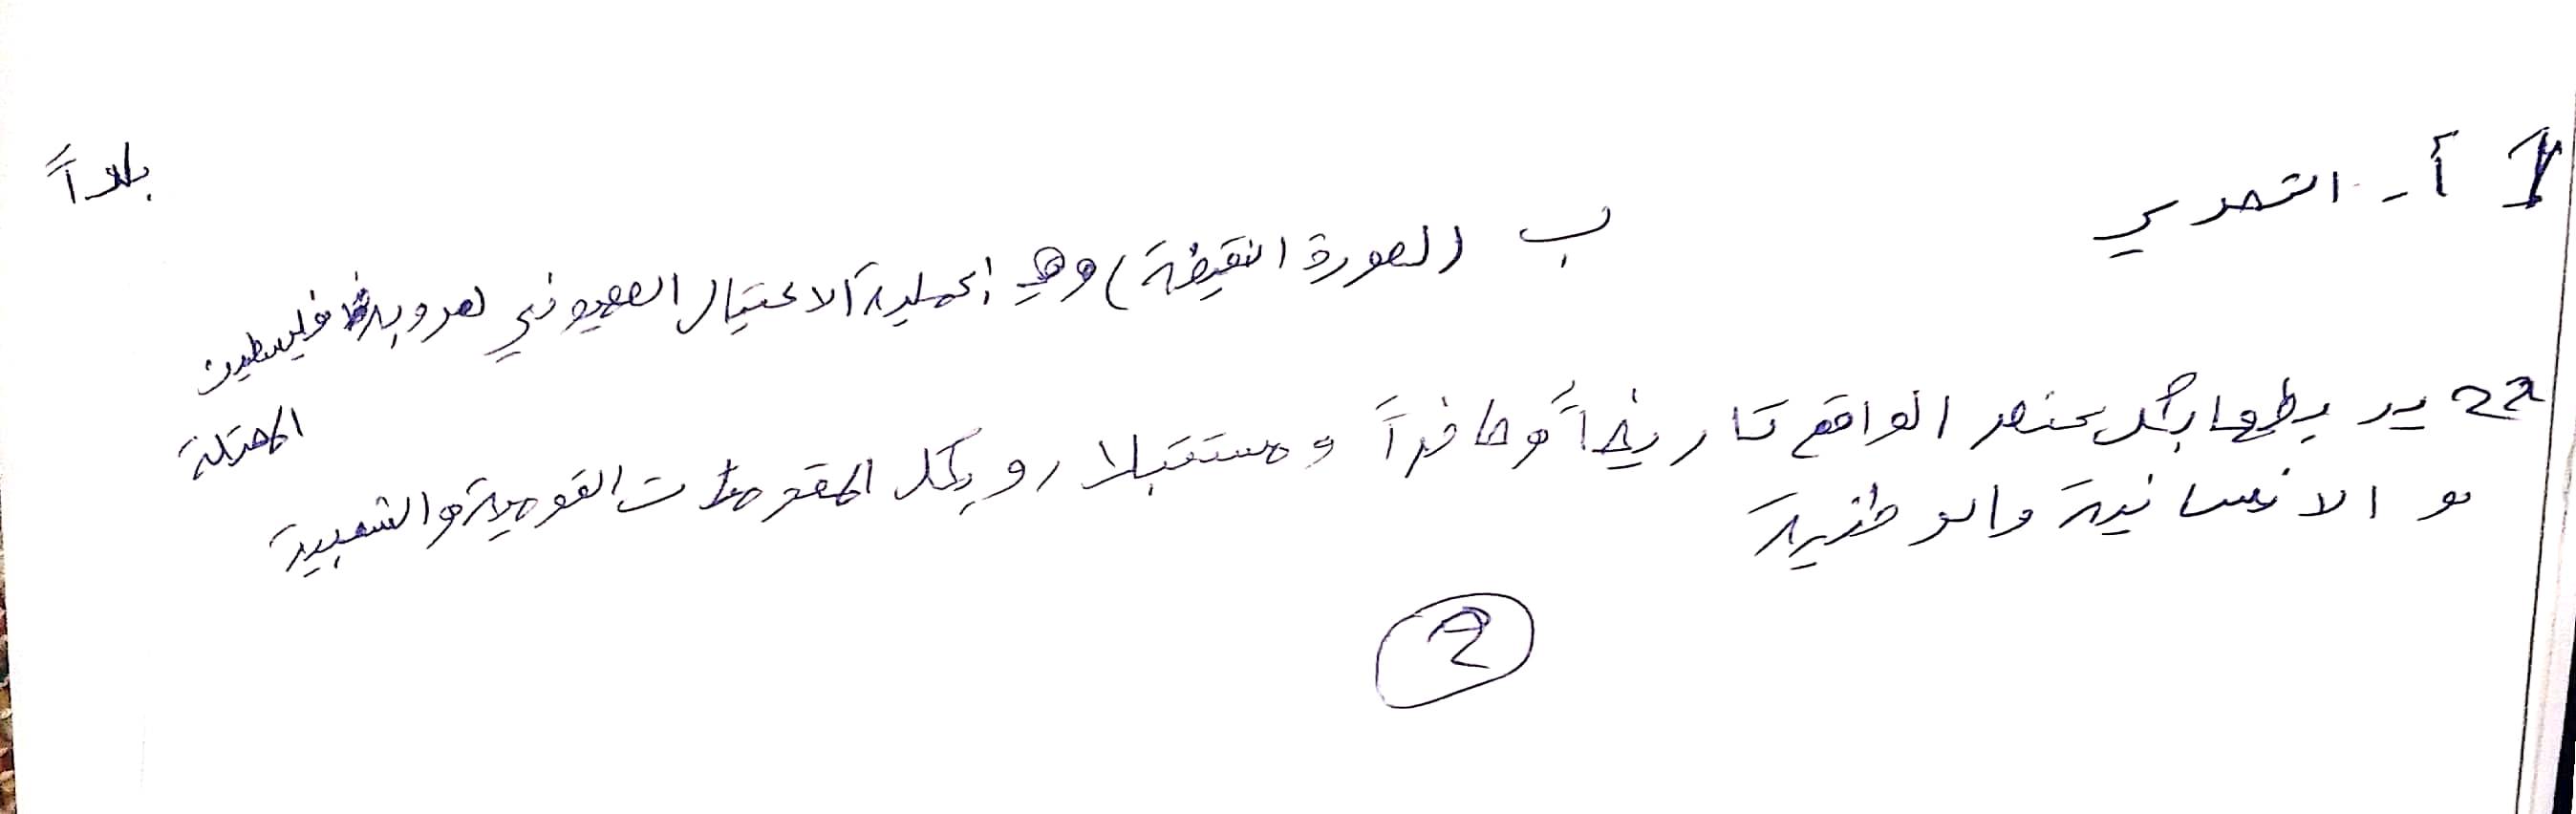 1 أ - التحدي
بلداً
ب (الصورة النقيضة) وهي عملية الاغتيال الصهيوني لعروبة فليسطين
المحتلة
2 يربطها بكل عنصر الواقع تاريخاً وحاضراً ومستقبلا، وبكل المقومات القومية والشعبية
و الانسانية والوطنية
2